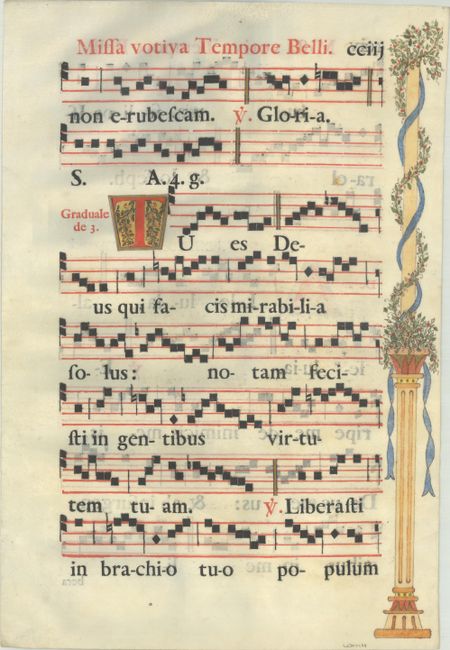 Miſſa votiva Tempore Belli. cciij
non e-rubeſcam. ℣. Glo-ri-a.
S. A. 4. g.
Graduale
de 3.
TU es De-
us qui fa- cis mi-rabi-li-a
ſo- lus: no- tam feci-
ſti in gen-tibus vir-tu-
tem tu- am. ℣. Liberaſti
in bra-chi-o tu-o po- pulum